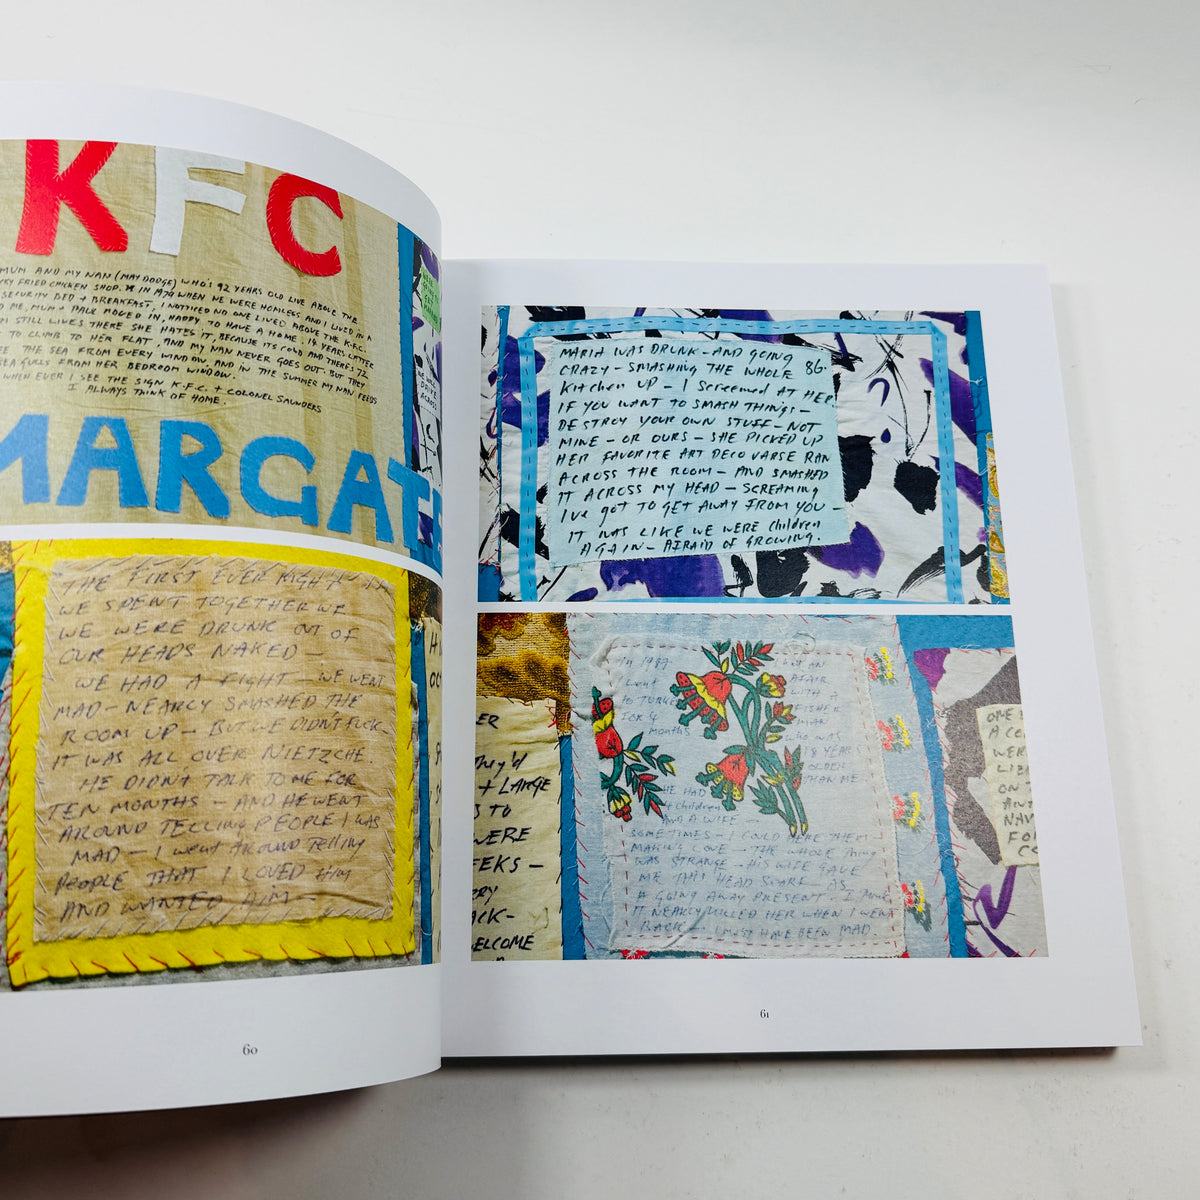 KFC
MUM AND MY NAN (MAY DODGE) WHO'S 92 YEARS OLD LIVE ABOVE THE
FRIED CHICKEN SHOP. IN 1974 WHEN WE WERE HOMELESS AND LIVED IN A
SECURITY BED + BREAKFAST, I NOTTICED NO ONE LIVED ABOVE THE K.F.C.
ME, MUM + PAUL MOVED IN, HAPPY TO HAVE A HOME. 14 YEARS LATTER
STILL LIVES THERE SHE HATES IT, BECAUSE ITS COLD AND THERES 72
TO CLIMB TO HER FLAT, AND MY NAN NEVER GOES OUT. BUT THEY
THE SEA FROM EVERY WINDOW AND IN THE SUMMER MY NAN FEEDS
SEA GULLS FROM HER BEDROOM WINDOW.
WHEN EVER I SEE THE SIGN K.F.C. + COLONEL SAUNDERS
I ALWAYS THINK OF HOME.
MARGATE
THE FIRST EVER NIGHT
WE SPENT TOGETHER WE
WE WERE DRUNK OUT OF
OUR HEADS NAKED —
WE HAD A FIGHT — WE WENT
MAD — NEARLY SMASHED THE
ROOM UP — BUT WE DIDNT FUCK.
IT WAS ALL OVER NIETZCHE.
HE DIDNT TALK TO ME FOR
TEN MONTHS — AND HE WENT
AROUND TELLING PEOPLE I WAS
MAD — I WENT AROUND Telling
PEOPLE THAT I LOVED HIM
AND WANTED HIM —
60
MARIA WAS DRUNK — AND GOING
CRAZY — SMASHING THE WHOLE 86.
Kitchen UP — I Screemed AT HER
IF YOU WANT TO SMASH THINGS —
DESTROY YOUR OWN STUFF — NOT
MINE — OR OURS — SHE PICKED UP
HER FAVORITE ART DECO VARSE RAN
ACROSS THE ROOM — AND SMASHED
IT ACROSS MY HEAD — SCREAMING
I'VE GOT TO GET AWAY FROM YOU —
IT WAS LIKE WE WERE children
AGAIN — AFRAID OF GROWING.
ER
They'd
+ LARGE
TO
WERE
EEKS —
ACK —
WELCOME
IN 1987
I went
to TURKEY
FOR 4
Months
AFAIR
WITH A
FISHER
MAN
who was
YEARS
OLDER
THAN ME
HE HAD
children
AND A WIFE —
SOMETIMES — I COULD HERE THEM
MAKING LOVE — THE WHOLE thing
WAS STRANGE — HIS WIFE GAVE
ME THIS HEAD SCARF AS
A GOING AWAY PRESENT.
IT NEARLY KILLED HER WHEN I WENT
BACK — I MUST HAVE BEEN MAD.
ONE
A CO
WERE
LIB
ON
ANT
NAV
FO
61